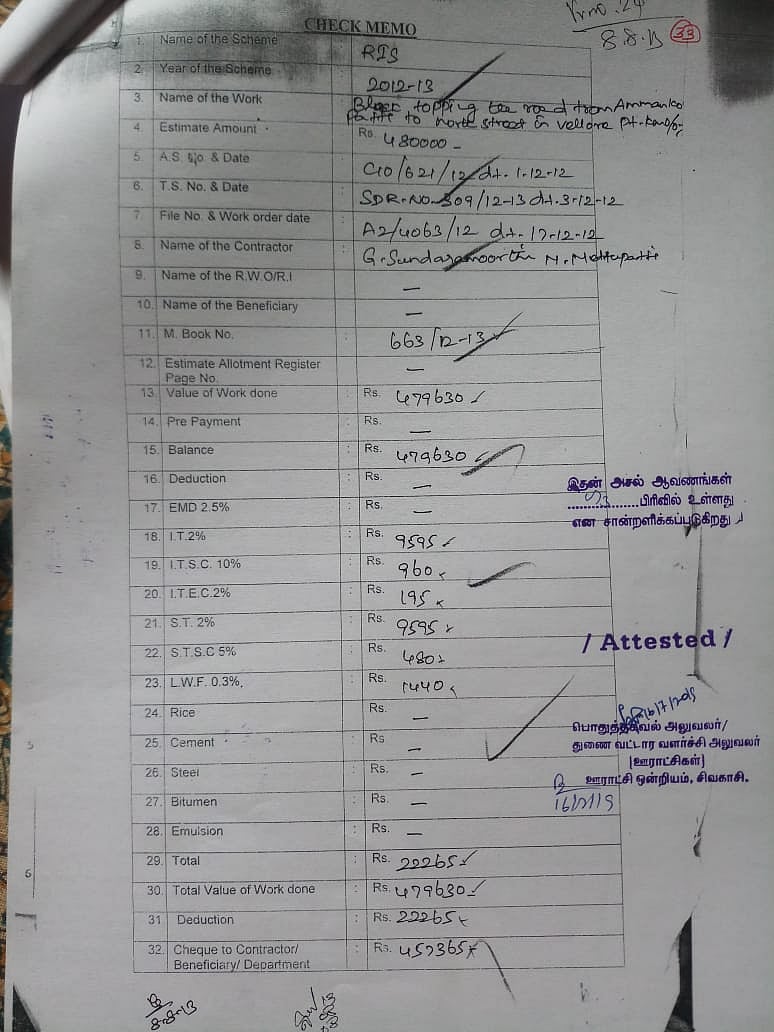 Vr no. 24
8.8.13
33
CHECK MEMO
1. Name of the Scheme : RIS
2. Year of the Scheme : 2012-13
3. Name of the Work : topping road from Ammankovil
Patti to north street in vellore Pt.
4. Estimate Amount : Rs. 480000 -
5. A.S. No. & Date : C10/621/12 dt. 1-12-12
6. T.S. No. & Date : SDR.NO. 309/12-13 dt. 3-12-12
7. File No. & Work order date : A2/4063/12 dt. 17-12-12
8. Name of the Contractor : G. Sundaramoorthi N. Mettupatti
9. Name of the R.W.O/R.I —
10. Name of the Beneficiary : —
11. M. Book No. : 663/12-13
12. Estimate Allotment Register —
Page No.
13. Value of Work done : Rs. 479630
14. Pre Payment : Rs. —
15. Balance : Rs. 479630
16. Deduction : Rs. —
17. EMD 2.5% : Rs. —
18. I.T.2% : Rs. 9595
19. I.T.S.C. 10% : Rs. 960
20. I.T.E.C.2% : Rs. 195
21. S.T. 2% : Rs. 9595
22. S.T.S.C 5% : Rs. 480
23. L.W.F. 0.3%, : Rs. 1440
24. Rice : Rs. —
25. Cement : Rs —
26. Steel : Rs. —
27. Bitumen : Rs. —
28. Emulsion : Rs. —
29. Total : Rs. 22265
30. Total Value of Work done : Rs. 479630
31 Deduction : Rs. 22265
32. Cheque to Contractor/ : Rs. 457365
Beneficiary/ Department
இதன் அசல் ஆவணங்கள்
.............. பிரிவில் உள்ளது
என சான்றளிக்கப்படுகிறது
/ Attested /
16/7/2019
பொதுத்தகவல் அலுவலர்/
துணை வட்டார வளர்ச்சி அலுவலர்
[ஊராட்சிகள்]
ஊராட்சி ஒன்றியம், சிவகாசி.
16/7/19
8-8-13